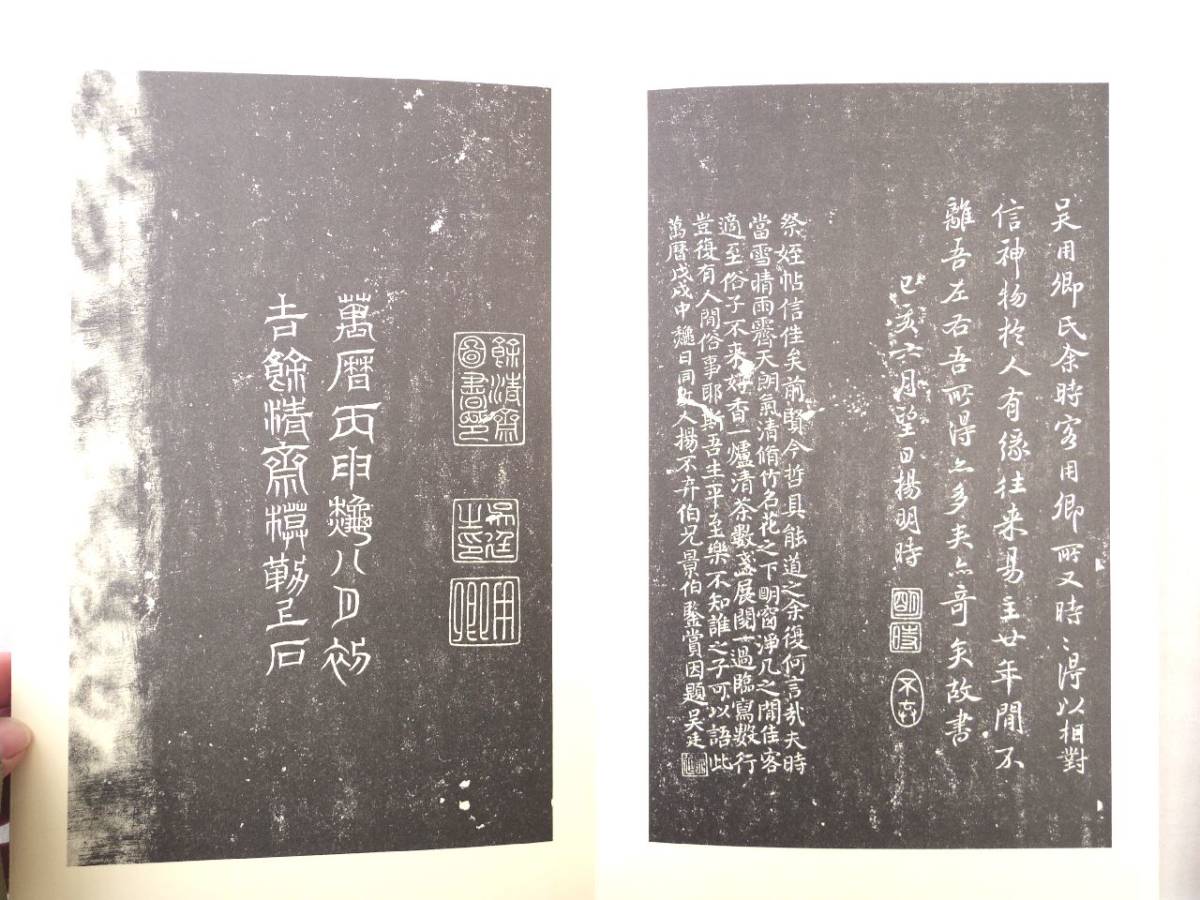 吴用卿氏余時客用卿所又時〻得以相對
信神物於人有缘往来易主廿年間不
離吾左右吾所得亦多矣亦奇矣故書
己亥六月望日揚明時
明時
不弃
祭姪帖信佳矣前賢今哲具能道之余復何言哉夫時
當雪晴雨霽天朗氣清脩竹名花之下明窗淨几之間佳客
適至俗子不来好香一爐清茶數盞展閱一過臨寫數行
豈復有人間俗事耶斯吾生平至樂不知誰之子可以語此
萬曆戊戌中龝日同友人揚不弃伯兄景伯鑒賞因題吴廷
餘清齋
圖書印
吴廷
之印
用卿
萬曆丙申龝八月初
吉餘清齋模勒上石